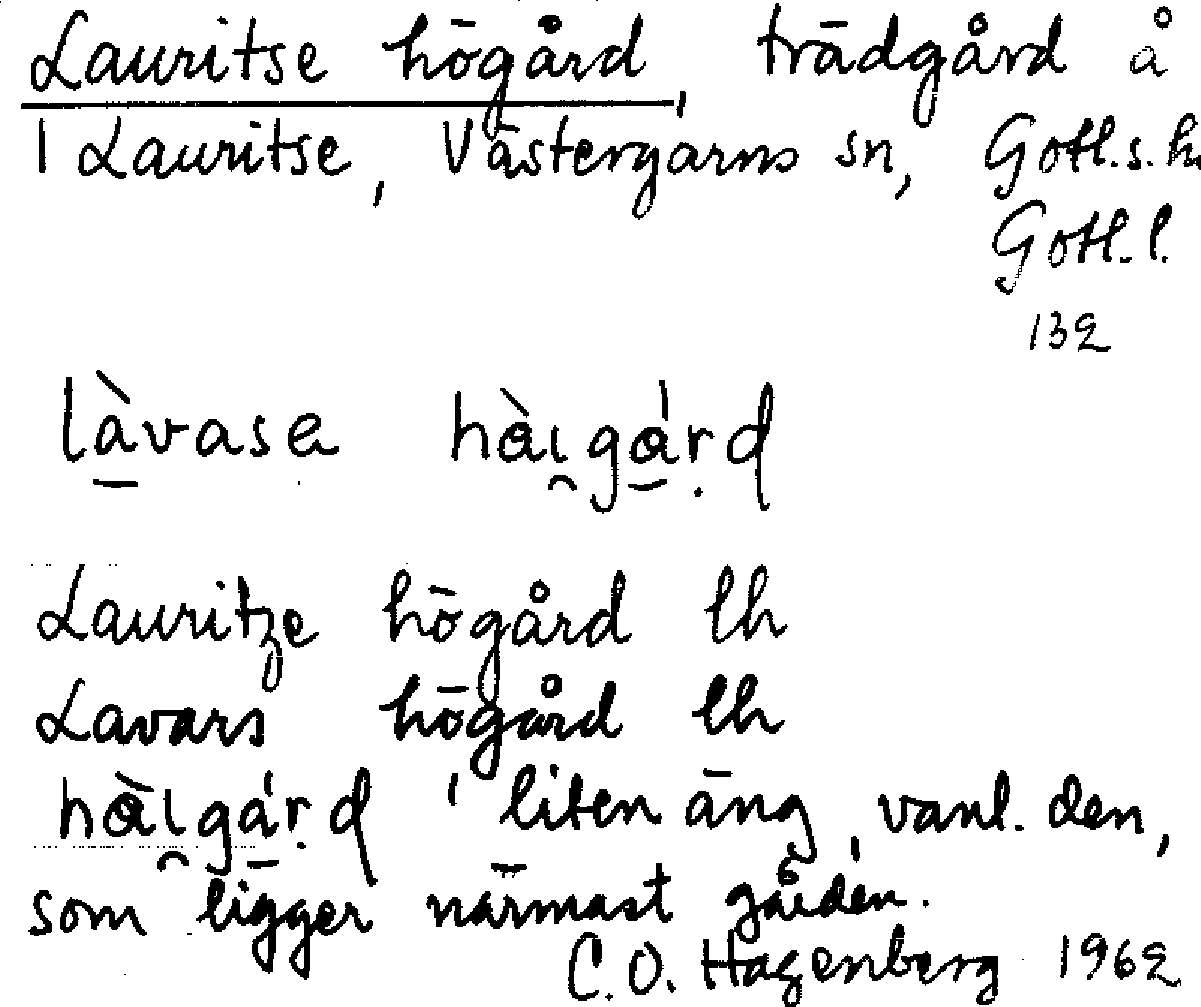 Lauritse högård, trädgård å
1 Lauritse, Västergarns sn, Gotl.s. hd
Gotl. l.
132
làvase hàigárd
Lauritze högård lh
Lavars högård lh
hàigárd 'liten äng, vanl. den,
som ligger närmast gården.'
C.O. Hagenberg 1962